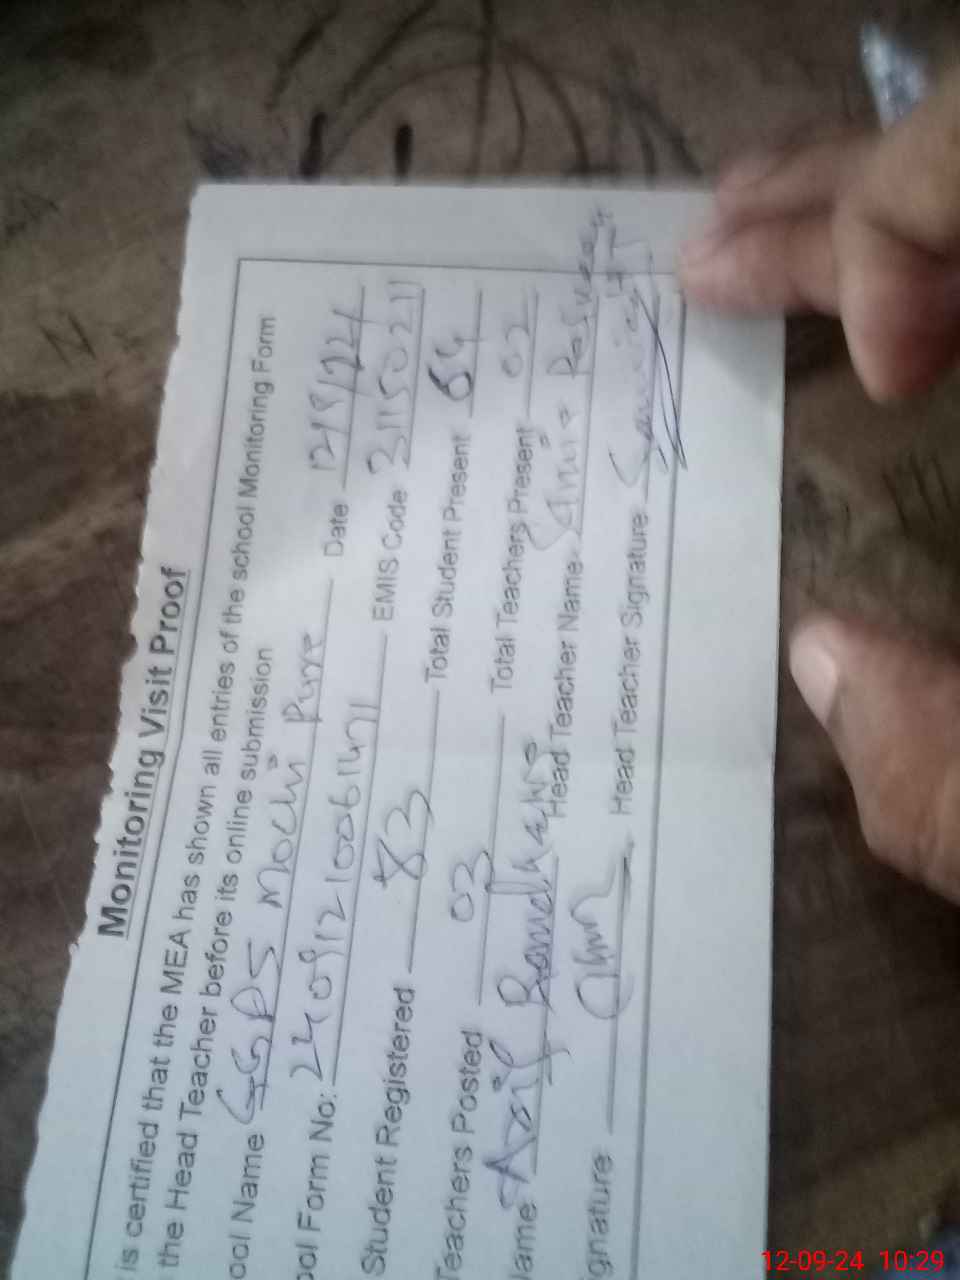 Monitoring Visit Proof
is certified that the MEA has shown all entries of the school Monitoring Form
the Head Teacher before its online submission
ool Name GGPS Mochi Pura Date 12/9/24
ool Form No: EMIS Code 31150211
Student Registered 83 Total Student Present 64
Teachers Posted 03 Total Teachers Present 02
Name Asif Head Teacher Name
ignature Head Teacher Signature
12-09-24 10:29